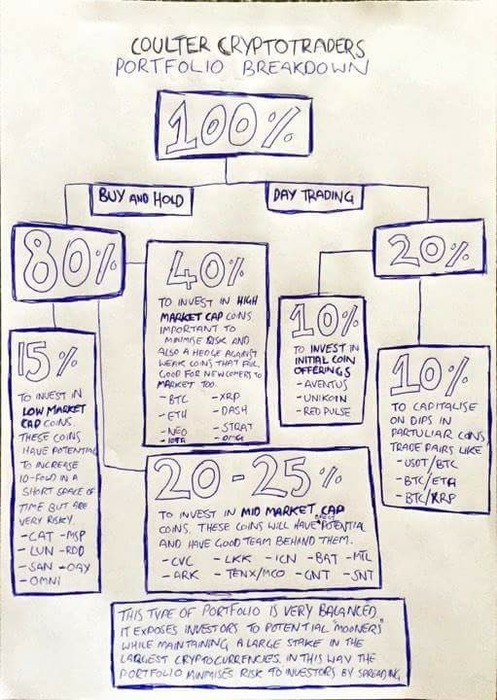 COULTER CRYPTOTRADERS
PORTFOLIO BREAKDOWN
100%
BUY AND HOLD
DAY TRADING
80%
20%
40%
TO INVEST IN HIGH
MARKET CAP COINS
IMPORTANT TO
MINIMISE RISK AND
ALSO A HEDGE AGAINST
WEAK COINS THAT FAIL.
GOOD FOR NEWCOMERS TO
MARKET TOO.
- BTC - XRP
- ETH - DASH
- NEO - STRAT
- IOTA - OMG
10%
TO INVEST IN
INITIAL COIN
OFFERINGS
- AVENTUS
- UNIKOIN
- RED PULSE
15%
TO INVEST IN
LOW MARKET
CAP COINS.
THESE COINS
HAVE POTENTIAL
TO INCREASE
10-FOLD IN A
SHORT SPACE OF
TIME BUT ARE
VERY RISKY.
- CAT - MSP
- LUN - RDD
- SAN - OAX
- OMNI
10%
TO CAPITALISE
ON DIPS IN
PARTULIAR COINS
TRADE PAIRS LIKE
- USDT/BTC
- BTC/ETH
- BTC/XRP
20-25%
TO INVEST IN MID MARKET CAP
COINS. THESE COINS WILL HAVE POTENTIAL
AND HAVE GOOD TEAM BEHIND THEM.
- CVC - LKK - ICN - BAT - MTL
- ARK - TENX/MCO - GNT - SNT
THIS TYPE OF PORTFOLIO IS VERY BALANCED
IT EXPOSES INVESTORS TO POTENTIAL "MOONERS"
WHILE MAINTAINING A LARGE STAKE IN THE
LARGEST CRYPTOCURRENCIES. IN THIS WAY THE
PORTFOLIO MINIMISES RISK TO INVESTORS BY SPREADING